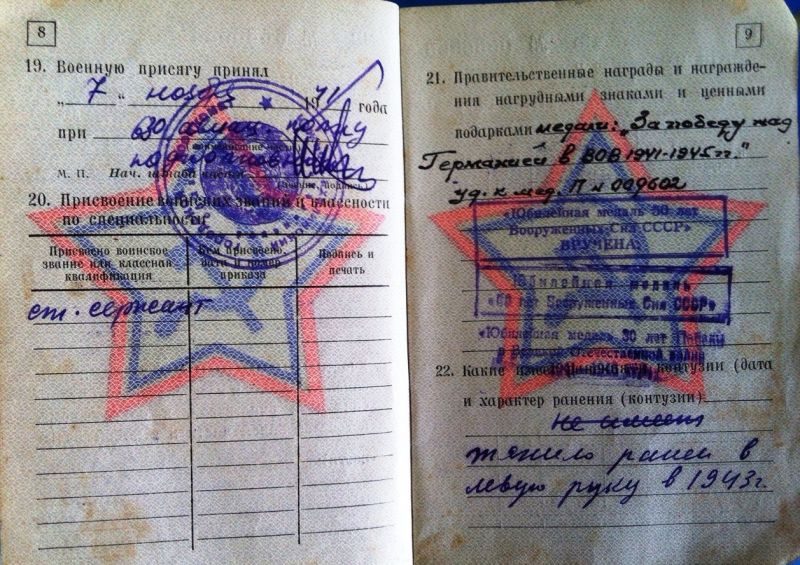 8
19. Военную присягу принял
„ 7 “ ноября 1941 года
при 630
М. П. Нач. штаба части
20. Присвоение воинских званий и классности
по специальности
Присвоено воинское
звание или классная
квалификация
Кем присвоено,
дата и номер
приказа
Подпись и
печать
ст. сержант
9
21. Правительственные награды и награжде-
ния нагрудными знаками и ценными
подарками медали: „За победу над
Германией в ВОВ 1941-1945гг."
уд. к мед. П № 009602
«Юбилейная медаль 50 лет
Вооруженных Сил СССР»
ВРУЧЕНА.
Юбилейная медаль
«60 лет Вооруженных Сил СССР»
«Юбилейная медаль 30 лет Победы
в Великой Отечественной войне
22. Какие имеет ранения, контузии (дата
и характер ранения (контузии)
Не имеет
тяжело ранен в
левую руку в 1943г.